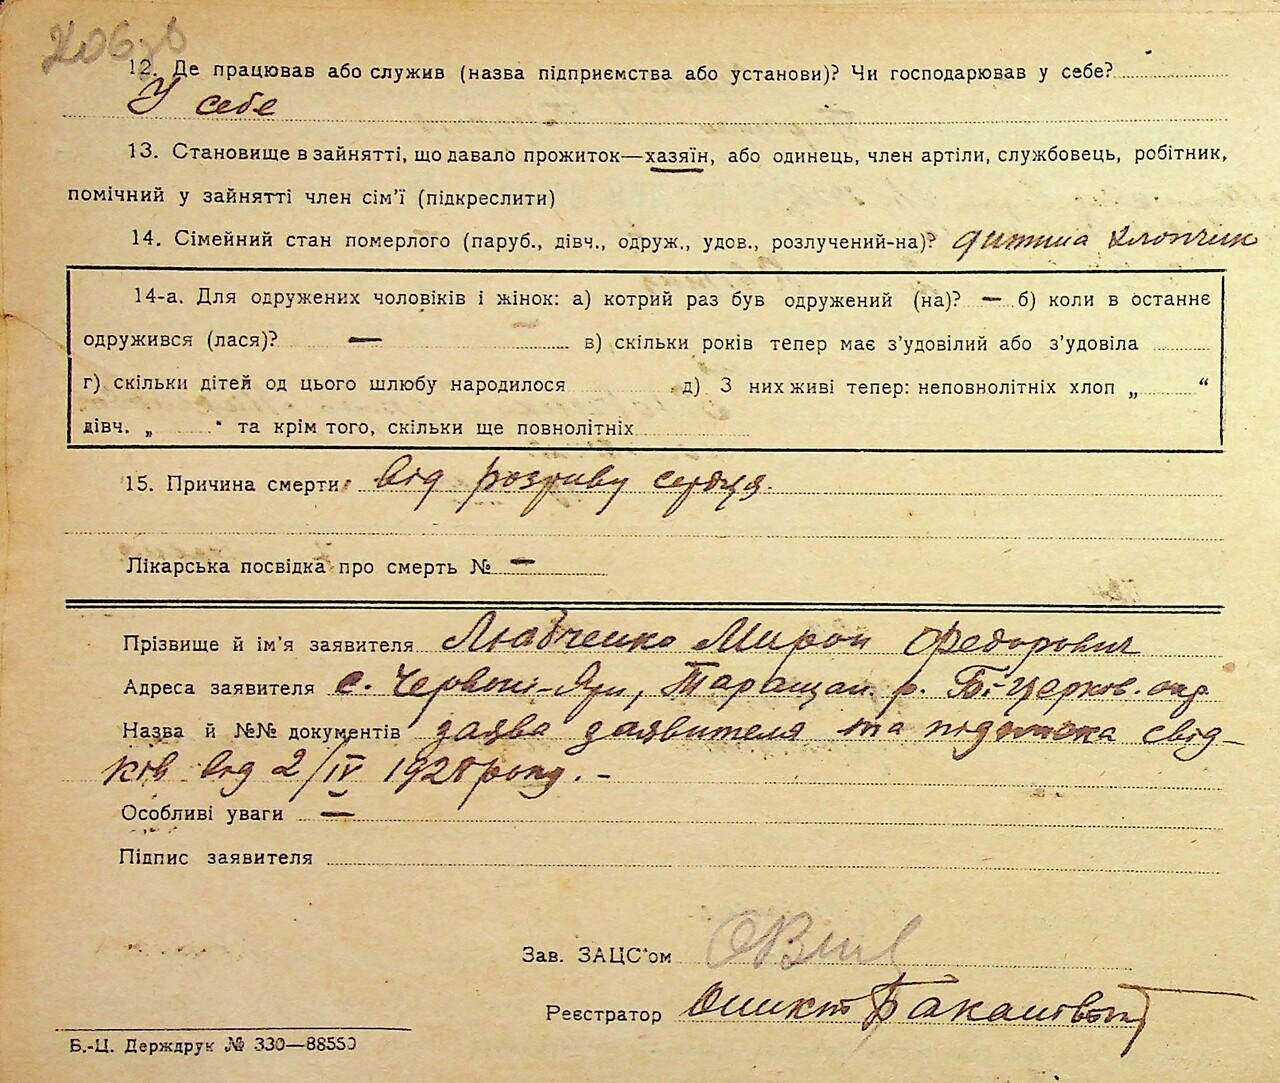 12. Де працював або служив (назва підприємства або установи)? Чи господарював у себе?
У себе
13. Становище в зайнятті, що давало прожиток—хазяїн, або одинець, член артіли, службовець, робітник,
помічний у зайнятті член сім'ї (підкреслити)
14. Сімейний стан померлого (паруб., дівч., одруж., удов., розлучений-на)? дитина хлопчик
14-а. Для одружених чоловіків і жінок: а) котрий раз був одружений (на)? — б) коли в останнє
одружився (лася)? — в) скільки років тепер має з'удовілий або з'удовіла
г) скільки дітей од цього шлюбу народилося д) З них живі тепер: неповнолітніх хлоп „ “
дівч. „ “ та крім того, скільки ще повнолітніх
15. Причина смерти від розриву серця.
Лікарська посвідка про смерть № —
Прізвище й ім'я заявителя Любченко Мирон Федорович
Адреса заявителя с. Червоні-Яри, Таращан. р. Б-Церков. окр.
Назва й №№ документів заява заявителя та підписка свід-
ків від 2/IV 1928 року. -
Особливі уваги —
Підпис заявителя
Зав. ЗАЦС'ом
Реєстратор
Б.-Ц. Держдрук № 330—88550